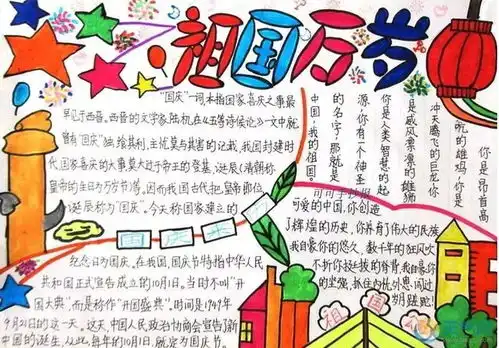 祖国万岁
"国庆"一词,本指国家喜庆之事,最
早见于西晋。西晋的文学家陆机在《五等诸侯论》一文中就
曾有"国庆独飨其利,主忧莫与其害"的记载、我国封建时
代、国家喜庆的大事莫大过于帝王的登基、诞辰(清朝称
皇帝的生日为万岁节)等。因而我国古代把皇帝即位、
诞辰称为"国庆"。今天称国家建立的
国庆来历
纪念日为国庆。在我国,国庆节特指中华人民
共和国正式宣告成立的10月1日。当时不叫"开
国大典",而是称作"开国盛典"。时间是1949年
9月21日的这一天。这天,中国人民政治协商会宣告了新
中国的诞生。从此,每年的10月1日,就定为国庆节。
吭的雄鸡,你是
你是昂首高
冲天腾飞的巨龙,你
是威风凛凛的雄狮
你是人类智慧的起
源,你有一个神圣
的名字,那就是
中国,我的祖国。
可爱的中国,你创造
了辉煌的历史,你养育了伟大的民族
我自豪你的悠久,数千年的狂风吹
不折你挺拔的脊背,我自豪你
的坚强,抵住内忧外患,闯过
岁月蹉跎!
祖国